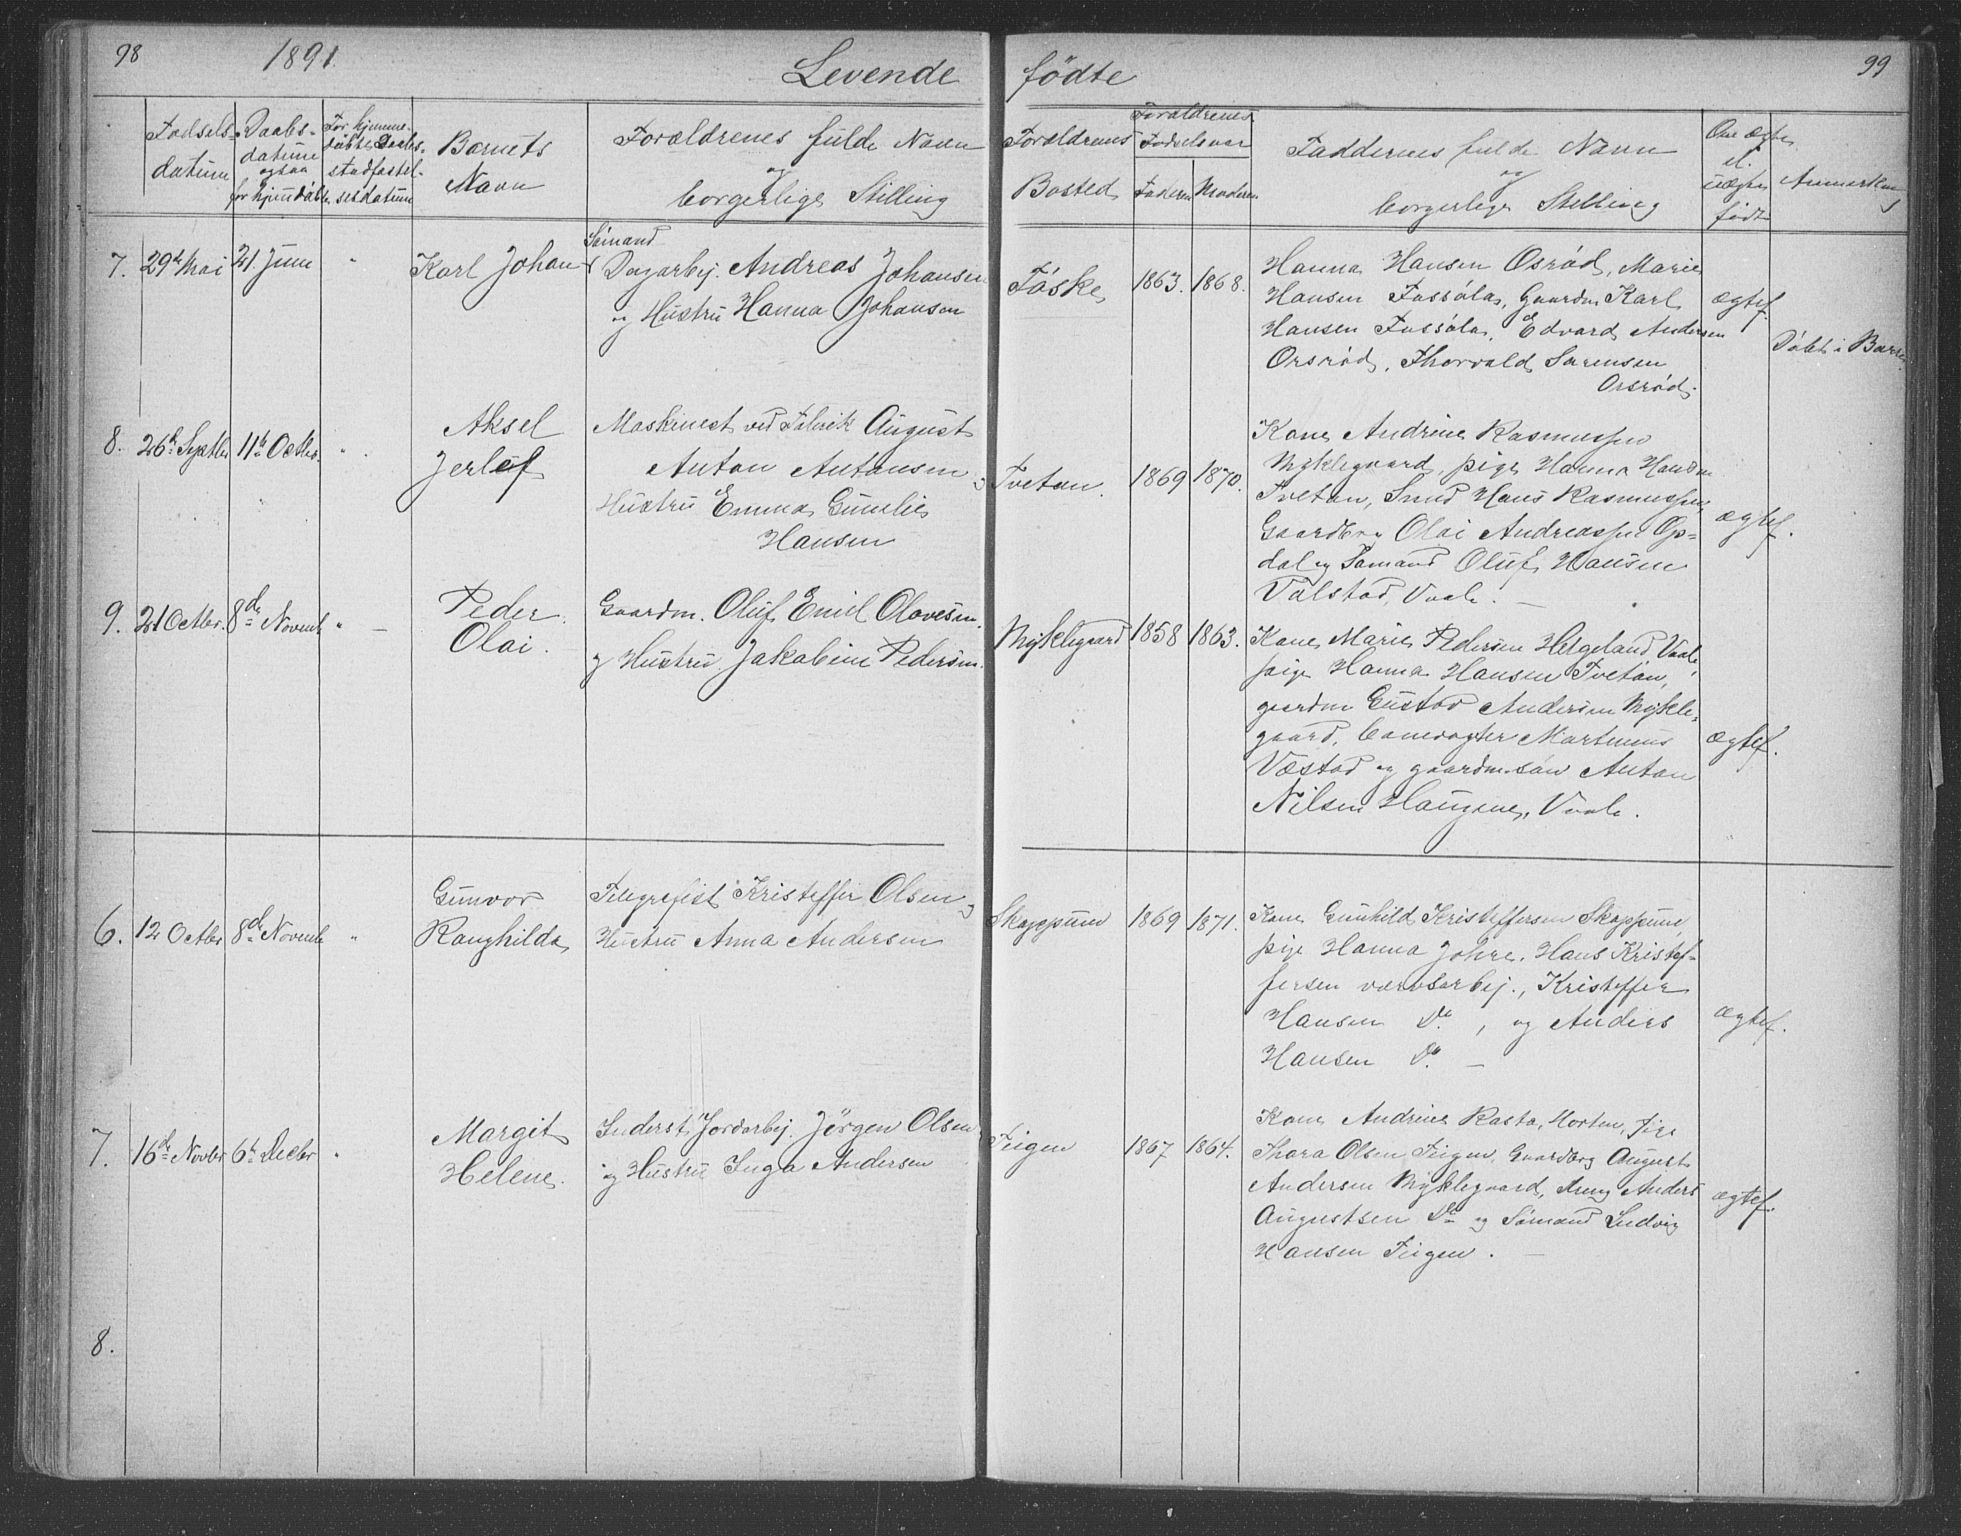 98 1891. Levende
Fødsels-
datum
Daabs-
datum
ogsaa
for hjemdøbte
For hjemme-
døbte Daabs-
stadfæstel-
sesdatum
Barnets
Navn
Forældrenes fulde Navn
og
borgerlige Stilling
7. 29de Mai 21 Juni " Karl Johan
Sømand
Dagarbj. Andreas Johansen
og Hustru Hanna Johansen
8. 26de Septbr 11te Octbr. "
Aksel
Jerlef
Maskinist ved Fabrik August
Anton Antonsen og
Hustru Emma Gunelie
Hansen
9. 21 Octbr. 8de Novemb "
Peder
Olai.
Gaardm. Oluf Emil Olavesen
og Hustru Jakobine Pedersen.
6. 12 Octbr 8de Novemb "
Gunvor
Ranghilda
Telegrafist Kristoffer Olsen og
Hustru Anna Andersen
7. 16de Novbr 6te Decbr "
Margit
Helene.
Inderst Jordarbej. Jørgen Olsen
og Hustru Inga Andersen
8.
fødte 99
Forældrenes
Bosted
Forældrenes
Fødselsaar
Faderen Moderen
Faddernes fulde Navn
og
borgerlige Stilling
Om ægte
el.
uægte
født
Anmærkning
Føske 1863. 1868.
Hanna Hansen Osrød, Marie
Hansen Fossøla, Gaardm Karl
Hansen Fossøla, Edvard Andersen
Orsrød, Thorvald Sørensen
Orsrød.
ægtef.
Døbt i Borre
Tveton. 1869 1870.
Kone Andrine Rasmussen
Myklegaard, pige Hanna Hansen
Tveton, Smed Hans Rasmussen,
Gaardbr. Olai Andreassen Op-
dal og Sømand Oluf Hansen
Valstad, Vaale.
ægtef.
Myklegaard 1858 1863.
Kone Marie Pedersen Helgeland Vaale,
pige Hanna Hansen Tveton,
gaardm Gustav Andersen Mykle-
gaard, banevogter Martinius
Væstad og gaardm.søn Anton
Nilsen Haugene, Vaale.
ægtef.
Skoppum 1869 1871.
Kone Gunhild Kristoffersen Skoppum,
pige Hanna Johre, Hans Kristof-
fersen værvsarbej., Kristoffer
Hansen Do , og Anders
Hansen Do. —
ægtef.
Feigen 1867 1864.
Kone Andrine Rasta, Horten, Pige
Thora Olsen Feigen, Gaardbrg August
Andersen Myklegaard, Anders
Augustsen Do og Sømand Ludvig
Hansen Feigen. —
ægtef.